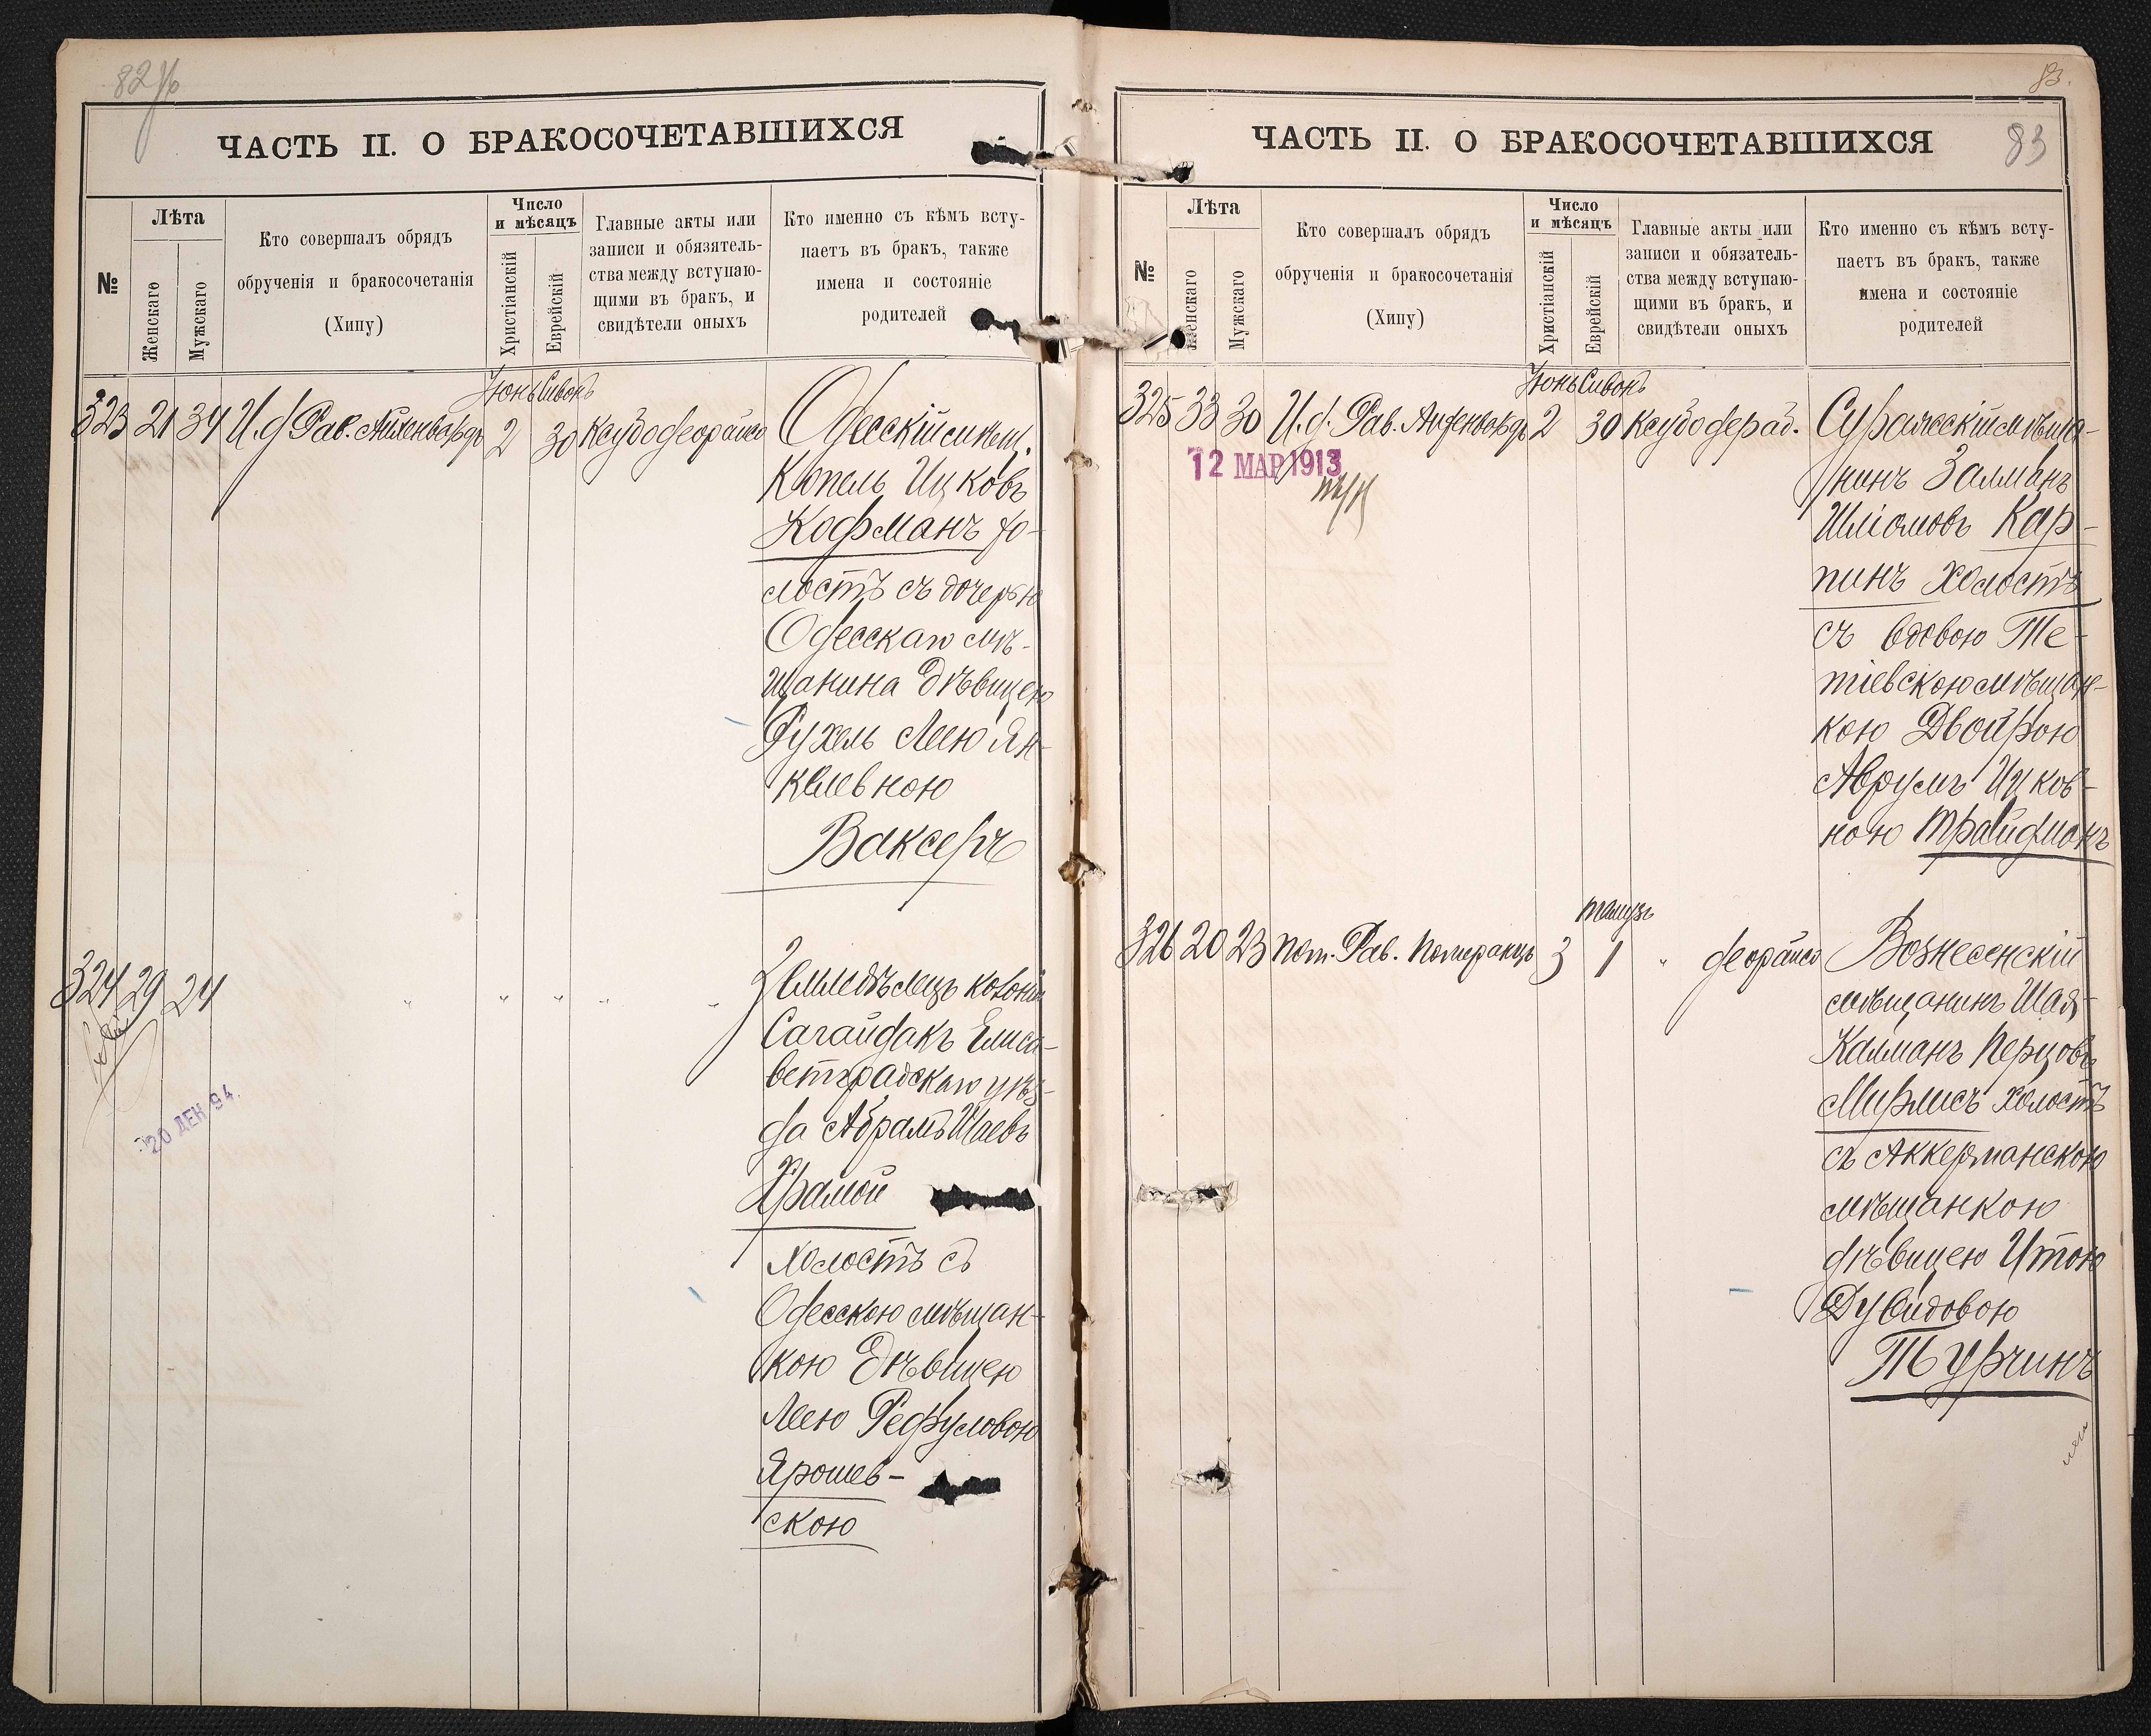 82
ЧАСТЬ II. О БРАКОСОЧЕТАВШИХСЯ
№
Лѣта
Женскаго
Мужскаго
Кто совершалъ обрядъ
обрученія и бракосочетанія
(Хипу)
Число
и мѣсяцъ
Христіанскій
Еврейскій
Главные акты или
записи и обязатель-
ства между вступаю-
щими въ бракъ, и
свидѣтели оныхъ
Кто именно съ кѣмъ всту-
паетъ въ бракъ, также
имена и состояніе
родителей
Іюнь Сивонъ
323 21 34 И.д Рав. Айзенвардъ 2 30 Ксубо деорайсо Одесскій
Копель Ицковъ
Кофманъ хо-
лостъ съ дочерью
Одесскаго мѣ-
щанина дѣвицею
Рухель Леею Ян-
келевною
Ваксеръ
324 29 24 " " " " " Земледѣлецъ колоніи
Сагайдакъ Елиса-
ветградскаго уѣз-
да Абрамъ Шаевъ
Храмой
холостъ съ
Одесскою мѣщан-
кою дѣвицею
Леею Рефуловою
Ярошев-
скою
20 ДЕК 94.
83.
83
ЧАСТЬ II. О БРАКОСОЧЕТАВШИХСЯ
№
Лѣта
Женскаго
Мужскаго
Кто совершалъ обрядъ
обрученія и бракосочетанія
(Хипу)
Число
и мѣсяцъ
Христіанскій
Еврейскій
Главные акты или
записи и обязатель-
ства между вступаю-
щими въ бракъ, и
свидѣтели оныхъ
Кто именно съ кѣмъ всту-
паетъ въ бракъ, также
имена и состояніе
родителей
Іюнь Сивонъ
325 33 30 И.д. Рав. Айзенвардъ 2 30 Ксубо дерад. Суражскій мѣща-
нинъ Залманъ
Шліомовъ Кар-
пинъ холостъ
съ вдовою Те-
тіевскою мѣщан-
кою Двойрою
Аврумъ Ицков-
ною Трайфманъ
12 МАР 1913
тамузъ
326 20 23 пом. Рав. Померанцъ 3 1 " деорайсо Вознесенскій
мѣщанинъ Шая-
Калманъ Перцовъ
Мирлисъ холостъ
съ Аккерманскою
мѣщанкою
дѣвицею Итою
Дувидовою
Турчинъ